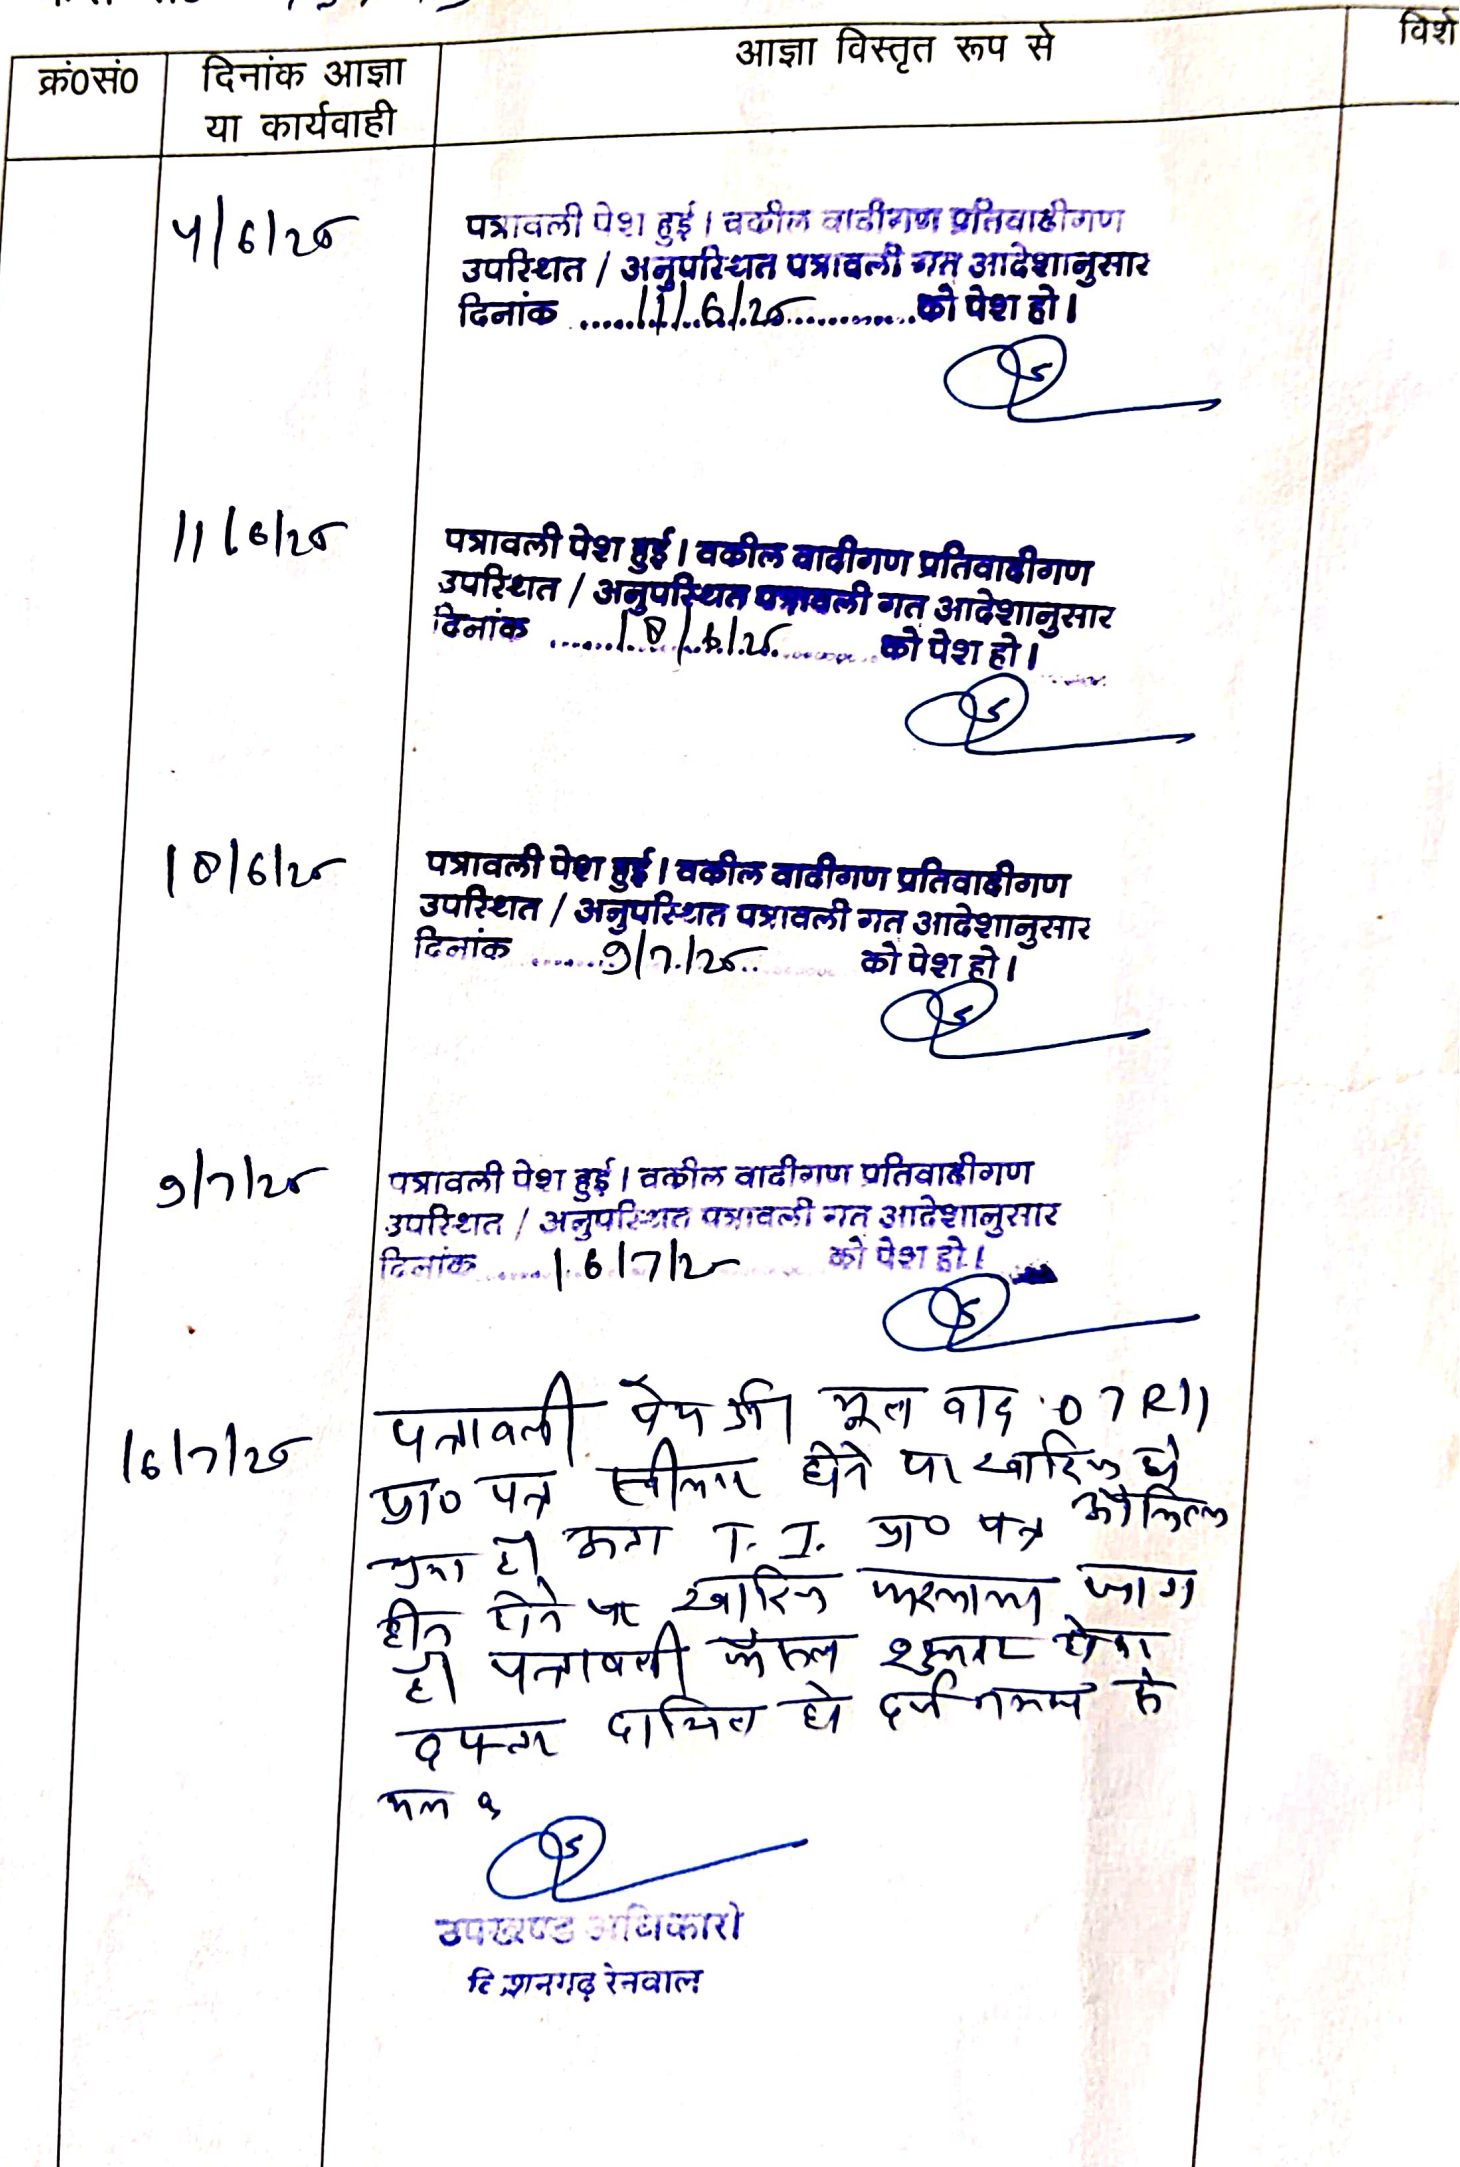 क्रं0सं0 दिनांक आज्ञा या कार्यवाही आज्ञा विस्तृत रूप से विशे
4/6/25 पत्रावली पेश हुई। वकील वादीगण प्रतिवादीगण
उपस्थित / अनुपस्थित पत्रावली गत आदेशानुसार
दिनांक ......11/6/25............को पेश हो।
11/6/25 पत्रावली पेश हुई। वकील वादीगण प्रतिवादीगण
उपस्थित / अनुपस्थित पत्रावली गत आदेशानुसार
दिनांक ......18/6/25............को पेश हो।
18/6/25 पत्रावली पेश हुई। वकील वादीगण प्रतिवादीगण
उपस्थित / अनुपस्थित पत्रावली गत आदेशानुसार
दिनांक ......9/7/25.. को पेश हो।
9/7/25 पत्रावली पेश हुई। वकील वादीगण प्रतिवादीगण
उपस्थित / अनुपस्थित पत्रावली गत आदेशानुसार
दिनांक ......16/7/25 को पेश हो।
16/7/25 पत्रावली पेश हुई। मूल वाद 07 R11
प्रा० पत्र स्वीकार होने पर खारिज हो
चुका है। अतः T. I. प्रा० पत्र
हीन होने पर खारिज फरमाया जाता
है। पत्रावली फैसल शुमार होकर
दफ्तर दाखिल हो दर्ज नम्बर से
कम हो
उपखण्ड अधिकारी
किशनगढ़ रेनवाल